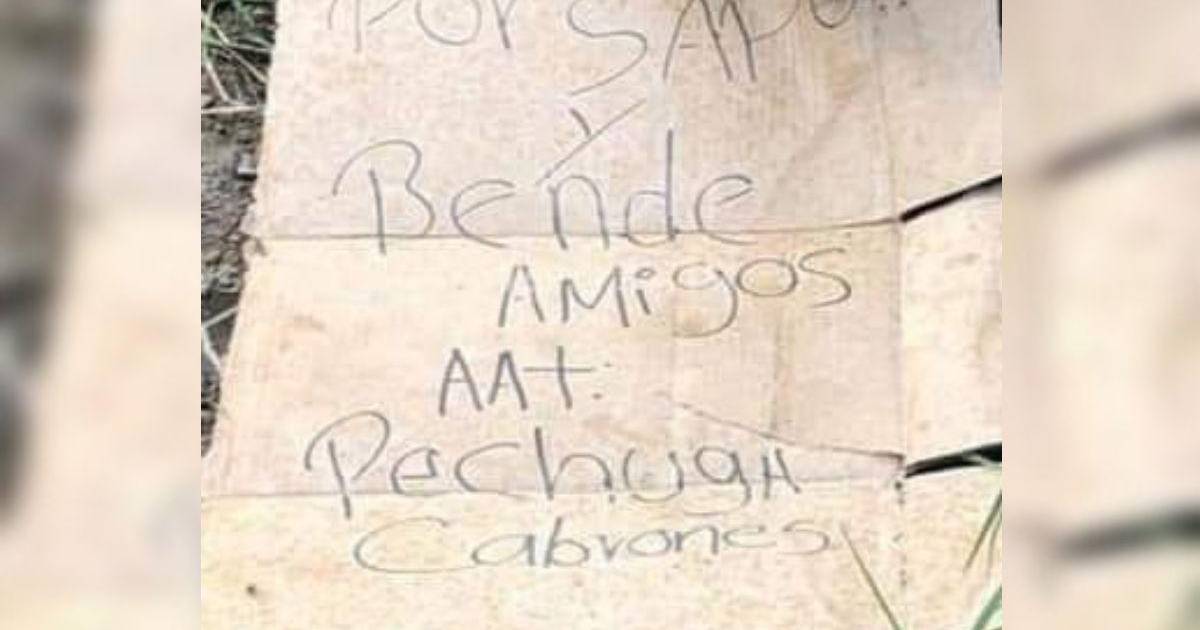 Por SAPO..
Y
Bende
AMigos
AAt:
PechugA
Cabrones